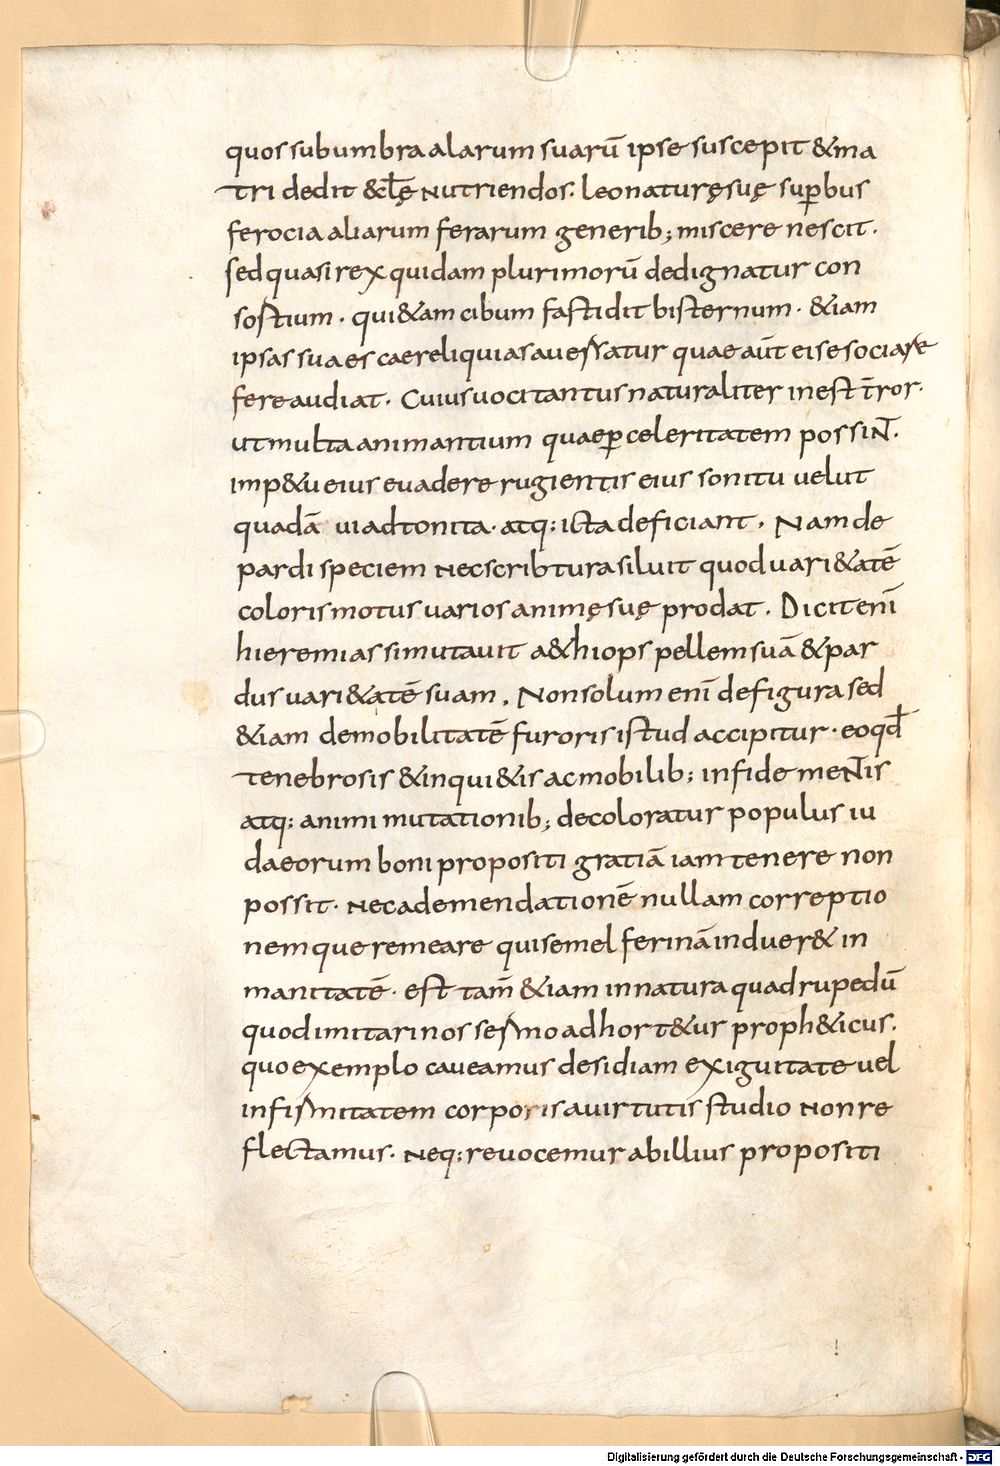 quos subumbra alarum suarū ipse suscepit & ma
tri dedit & cłę nutriendos. leo naturę suę sup̄bus
ferocia aliarum ferarum generib; miscere nescit.
sed quasi rex quidam plurimorū dedignatur con
sostium. qui &am cibum fastidit bisternum. &iam
ipsas suaes caereliquias auersatur quae aūt eise sociare
fere audiat. Cuius uoci tantus naturaliter inest t̄ror.
ut multa animantium quae p̄ celeritatem possiN̄.
imp&u eius euadere rugientis eius sonitu uelut
quadā ui adtonita. atq: icta deficiant. Nam de
pardi speciem nec scribtura siluit quod uari&atē
coloris motus uarios animę suę prodat. Dicit enī
hieremias si mutauit a&hiops pellem suā & par
dus uari&atē suam. Non solum enī de figura sed
&iam de mobilitatē furoris istud accipitur. eo qđ
tenebrosis & inqui&is ac mobilib; infide meN̄is
atq: animi mutationib; decoloratur populus iu
daeorum boni propositi gratiā iam tenere non
possit. nec ad emendationē nullam correptio
nemque remeare qui semel ferinā induer& in
manitatē. est tam̄ &iam in natura quadrupedū
quod imitari nos sermo adhort&ur proph&icus.
quo exemplo caueamus desidiam exiguitate uel
infirmitatem corporis a uirtutis studio non re
flectamus. neq: reuocemur ab illius propositi
Digitalisierung gefördert durch die Deutsche Forschungsgemeinschaft - DFG